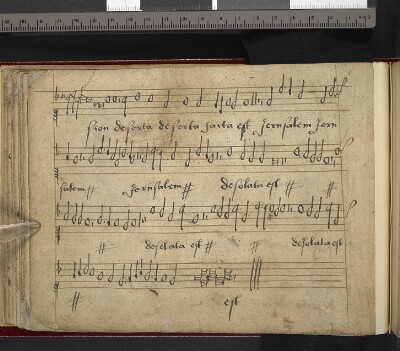 sion deserta deserta facta est Jerusalem Jeru
salem Jerusalem desolata est
desolata est desolata est
est